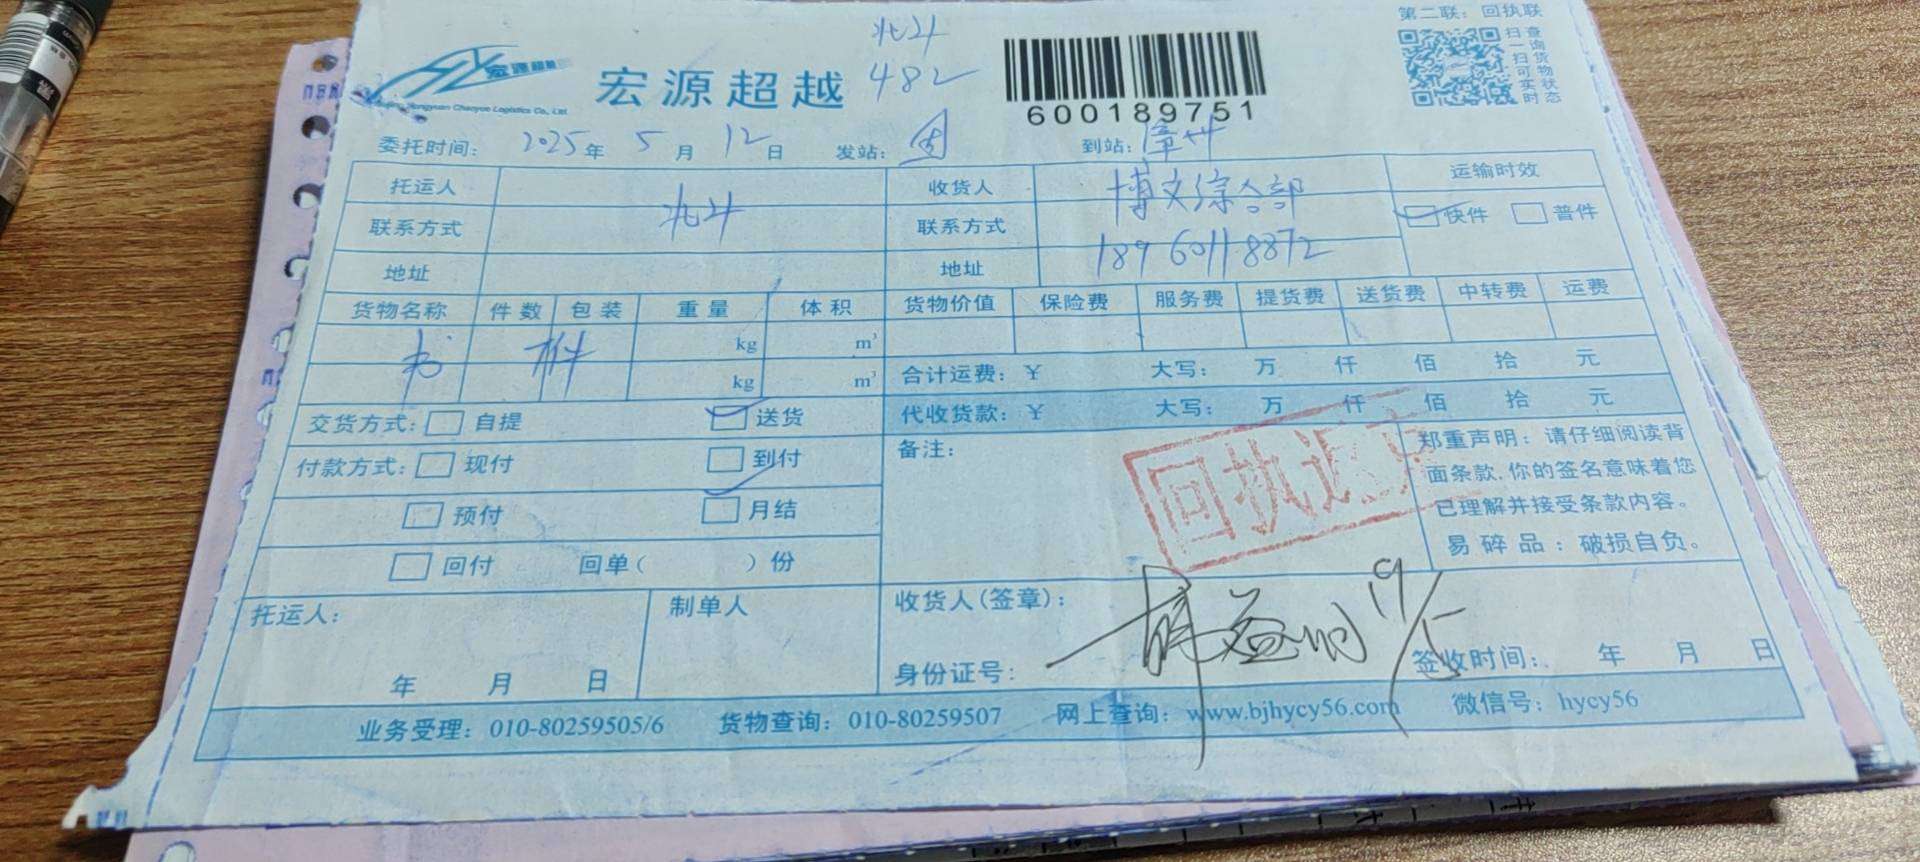 第二联：回执联
北斗
482
宏源超越
Beijing Hongyuan Chaoyue Logistics Co., Ltd
宏源超越
600189751
扫一扫可实时
查询货物状态
委托时间： 2025年 5月 12日 发站： 到站：漳州
托运人 北斗 收货人 博文综合部 运输时效
联系方式 联系方式 18960118872 快件 普件
地址 地址
货物名称 件数 包装 重量 体积 货物价值 保险费 服务费 提货费 送货费 中转费 运费
书 件 kg m³
kg m³ 合计运费：￥ 大写： 万 仟 佰 拾 元
交货方式： 自提 送货 代收货款：￥ 大写： 万 仟 佰 拾 元
付款方式： 现付 到付 备注：
预付 月结
回付 回单（ ）份
回执
郑重声明：请仔细阅读背
面条款,你的签名意味着您
已理解并接受条款内容。
易碎品：破损自负。
托运人： 制单人 收货人(签章)： 19/5
年 月 日 身份证号： 签收时间： 年 月 日
业务受理：010-80259505/6 货物查询：010-80259507 网上查询：www.bjhycy56.com 微信号：hycy56